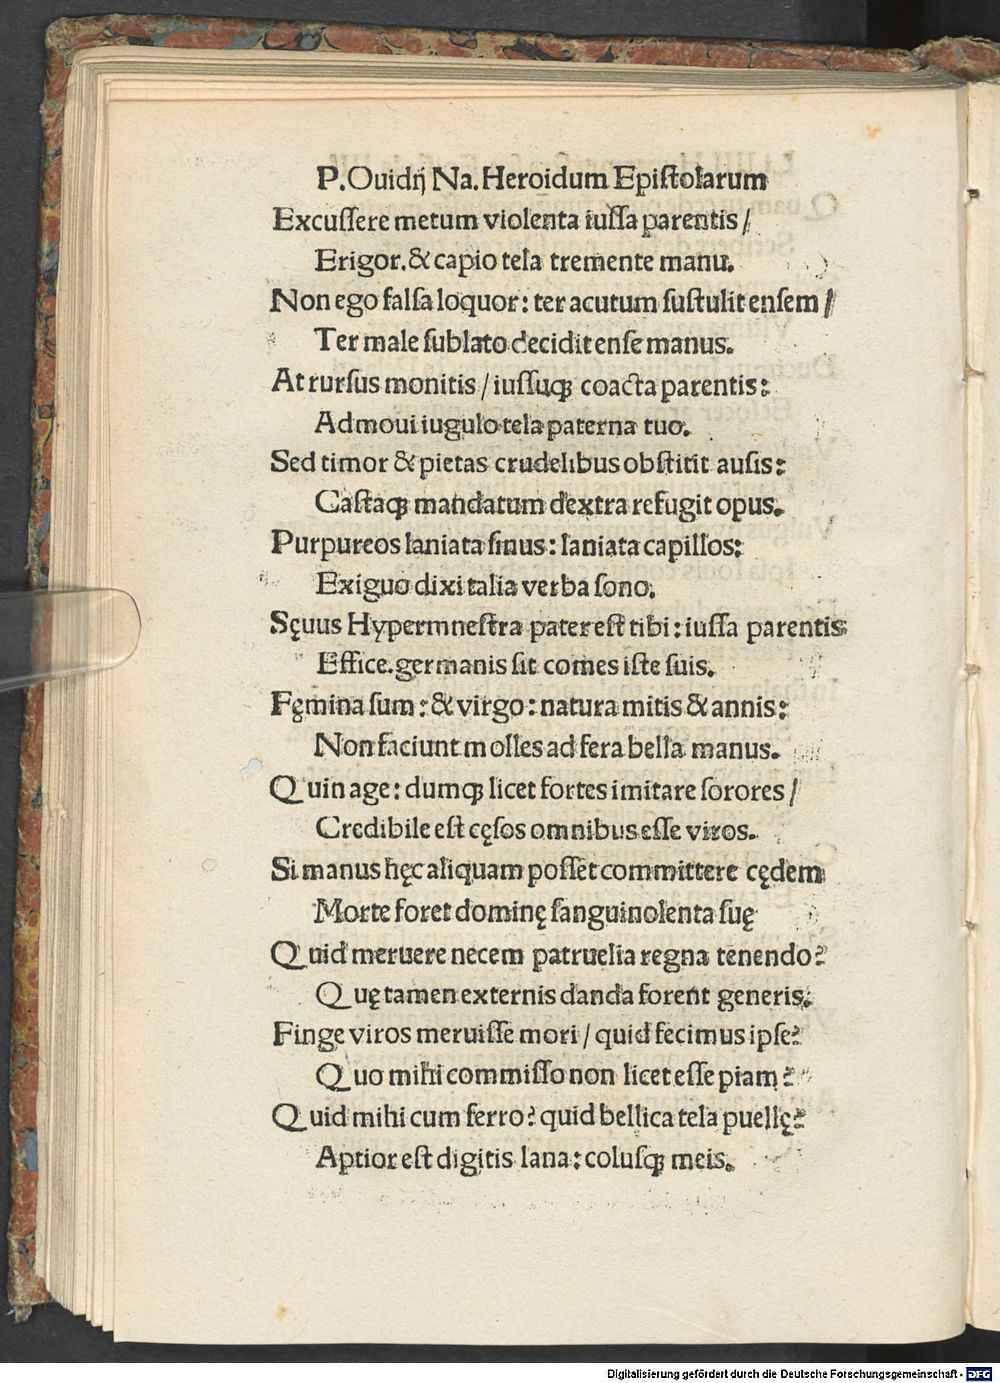 P. Ouidij Na. Heroidum Epiſtolarum
Excuſſere metum violenta iuſſa parentis /
Erigor. & capio tela tremente manu.
Non ego falſa loquor: ter acutum ſuſtulit enſem /
Ter male ſublato decidit enſe manus.
At rurſus monitis / iuſſuqꝫ coacta parentis:
Admoui iugulo tela paterna tuo.
Sed timor & pietas crudelibus obſtitit auſis:
Caſtaqꝫ mandatum dextra refugit opus.
Purpureos laniata ſinus: laniata capillos:
Exiguo dixi talia verba ſono.
Sęuus Hypermneſtra pater eſt tibi: iuſſa parentis
Effice. germanis ſit comes iſte ſuis.
Fęmina ſum: & virgo: natura mitis & annis:
Non faciunt molles ad fera bella manus.
Quin age: dumqꝫ licet fortes imitare ſorores /
Credibile eſt cęſos omnibus eſſe viros.
Si manus hęc aliquam poſſet committere cędem
Morte foret dominę ſanguinolenta ſuę
Quid meruere necem patruelia regna tenendo?
Quę tamen externis danda forent generis.
Finge viros meruiſſe mori / quid fecimus ipſe?
Quo mihi commiſſo non licet eſſe piam?
Quid mihi cum ferro? quid bellica tela puellę?
Aptior eſt digitis lana: coluſqꝫ meis.
Digitalisierung gefördert durch die Deutsche Forschungsgemeinschaft - DFG